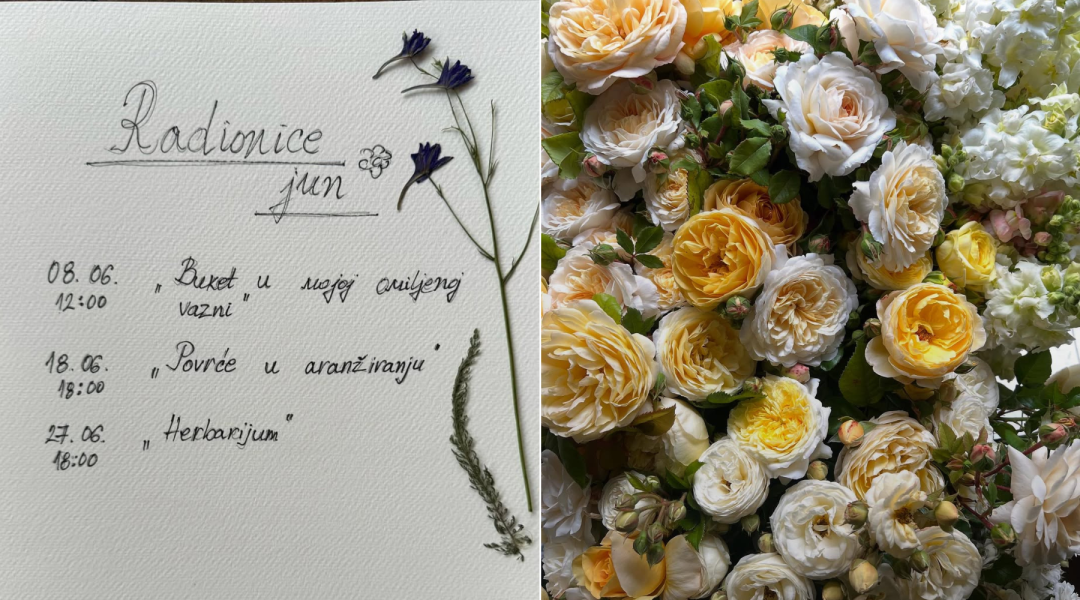 Radionice
jun
08. 06. „Buket u mojoj omiljenoj
12:00 vazni"
18. 06. „Povrće u aranžiranju"
18:00
27. 06. „Herbarijum"
18:00